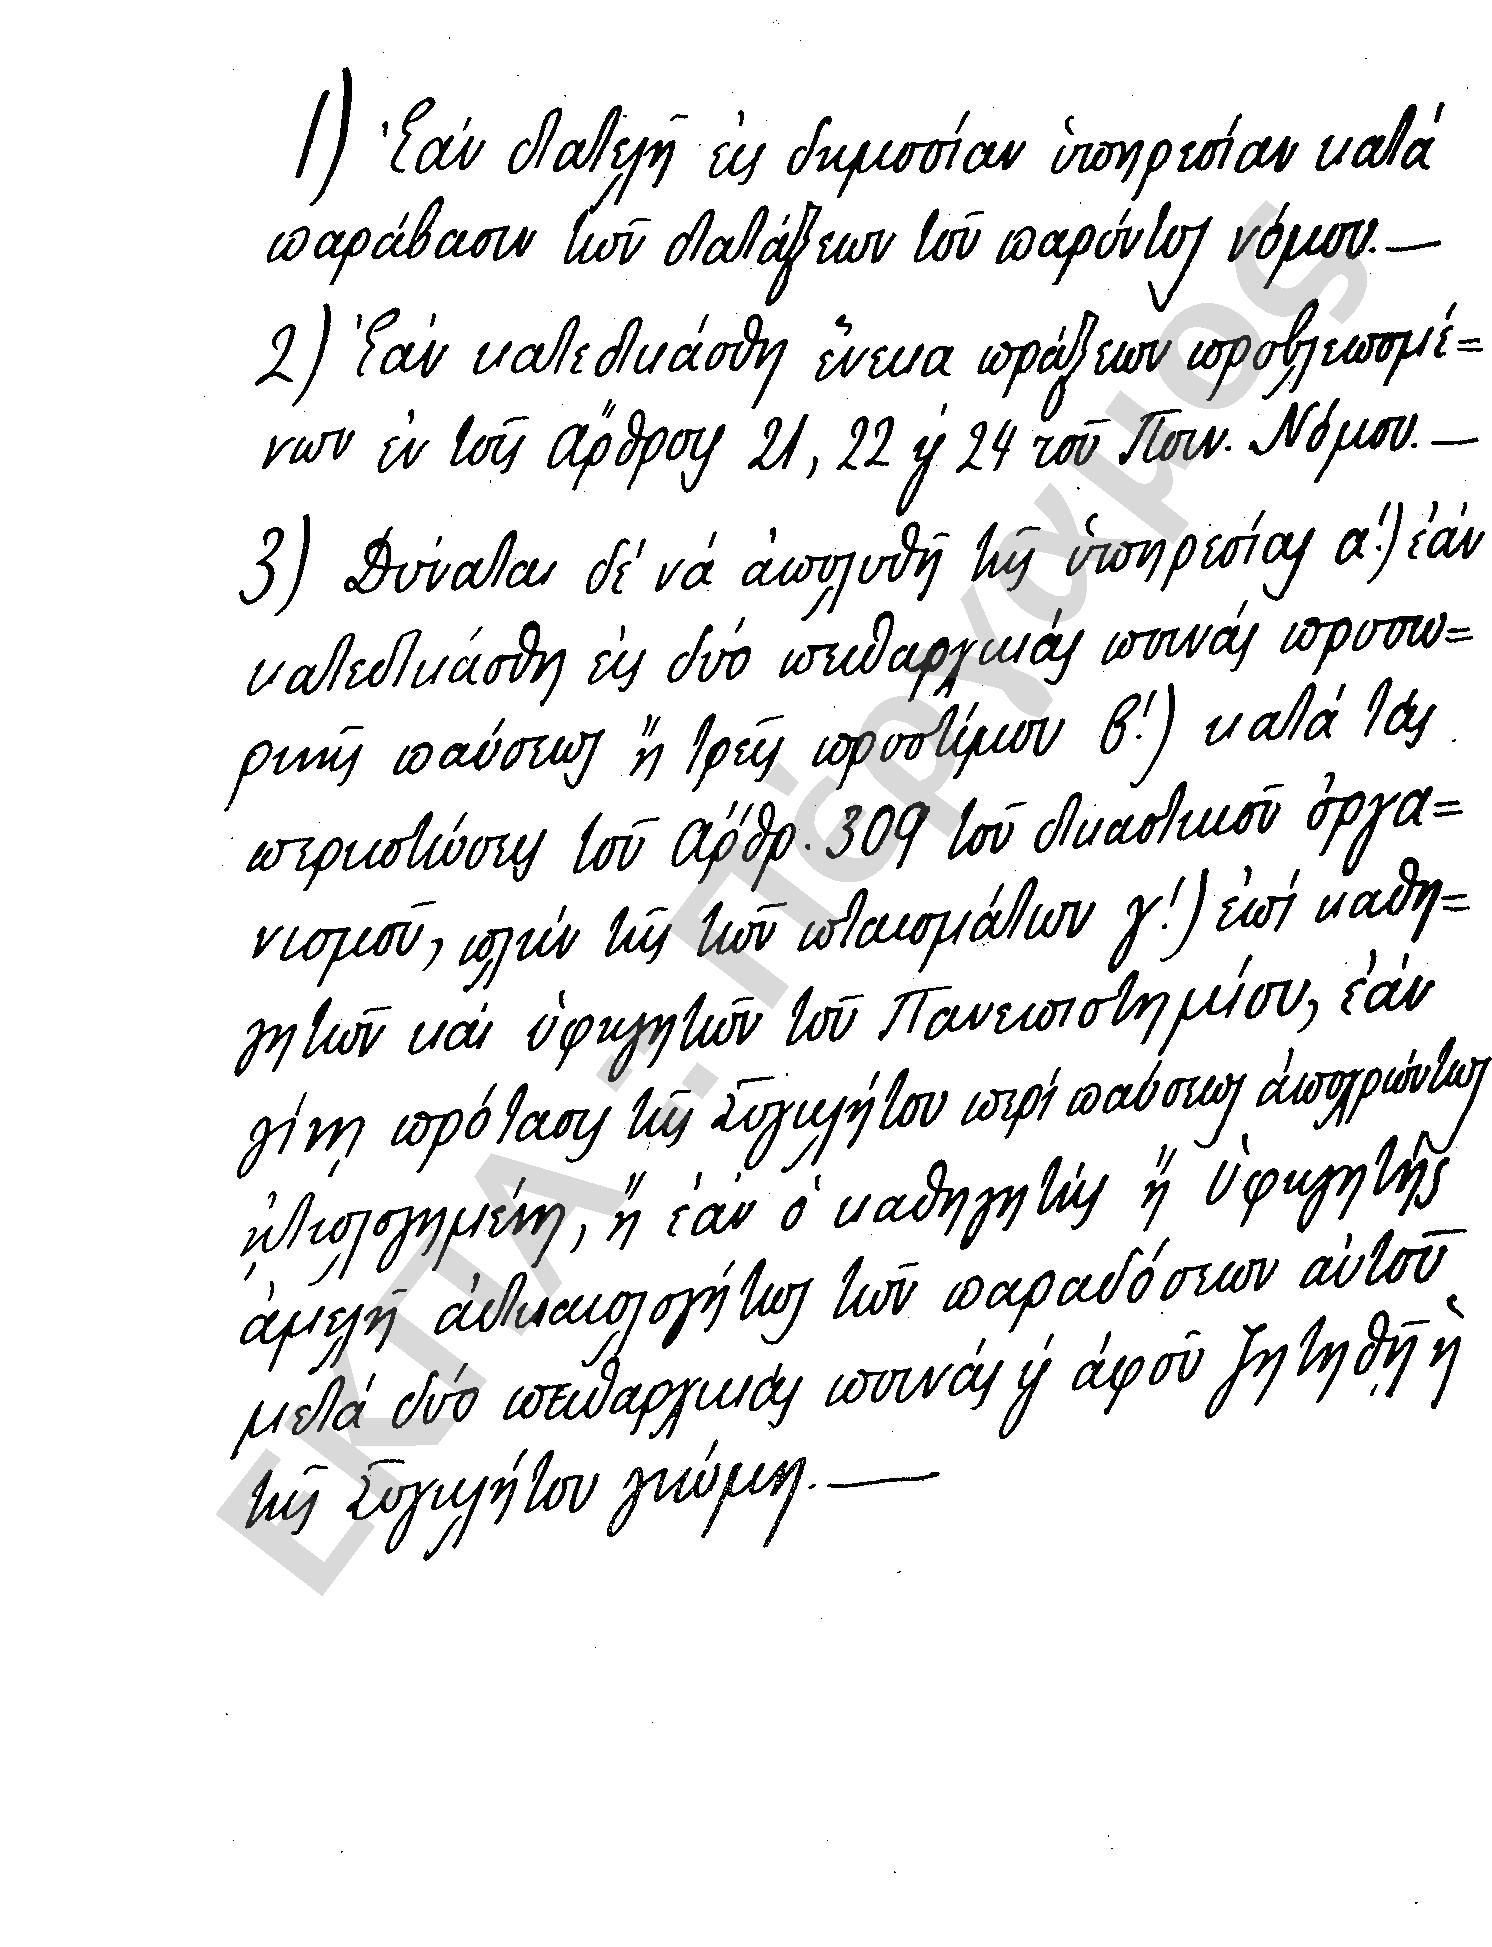 1) Ἐάν διατελῇ εἰς δημοσίαν ὑπηρεσίαν κατά
παράβασιν τῶν διατάξεων τοῦ παρόντος νόμου.—
2) Ἐάν κατεδικάσθη ἕνεκα πράξεων προβλεπομέ=
νων ἐν τοῖς ἄρθροις 21, 22 ἤ 24 τοῦ Ποιν. Νόμου.—
3) Δύναται δέ νά ἀπολυθῇ τῆς ὑπηρεσίας α΄.) ἐάν
κατεδικάσθη εἰς δύο πειθαρχικάς ποινάς προσω=
ρινῆς παύσεως ἤ τρεῖς προστίμου β΄.) κατά τάς
περιπτώσεις τοῦ ἄρθρ. 309 τοῦ δικαστικοῦ ὀργα=
νισμοῦ, πλήν τῆς τῶν πταισμάτων γ΄.) ἐπί καθη=
γητῶν καί ὑφηγητῶν τοῦ Πανεπιστημίου, ἐάν
γίνῃ πρότασις τῆς Συγκλήτου περί παύσεως ἀποχρώντως
ᾐτιολογημένη, ἤ ἐάν ὁ καθηγητής ἤ ὑφηγητής
ἀμελῇ ἀδικαιολογήτως τῶν παραδόσεων αὐτοῦ
μετά δύο πειθαρχικάς ποινάς ἤ ἀφοῦ ζητηθῇ ἡ
τῆς Συγκλήτου γνώμη.—
ΕΚΠΑ.: Πέργαμος